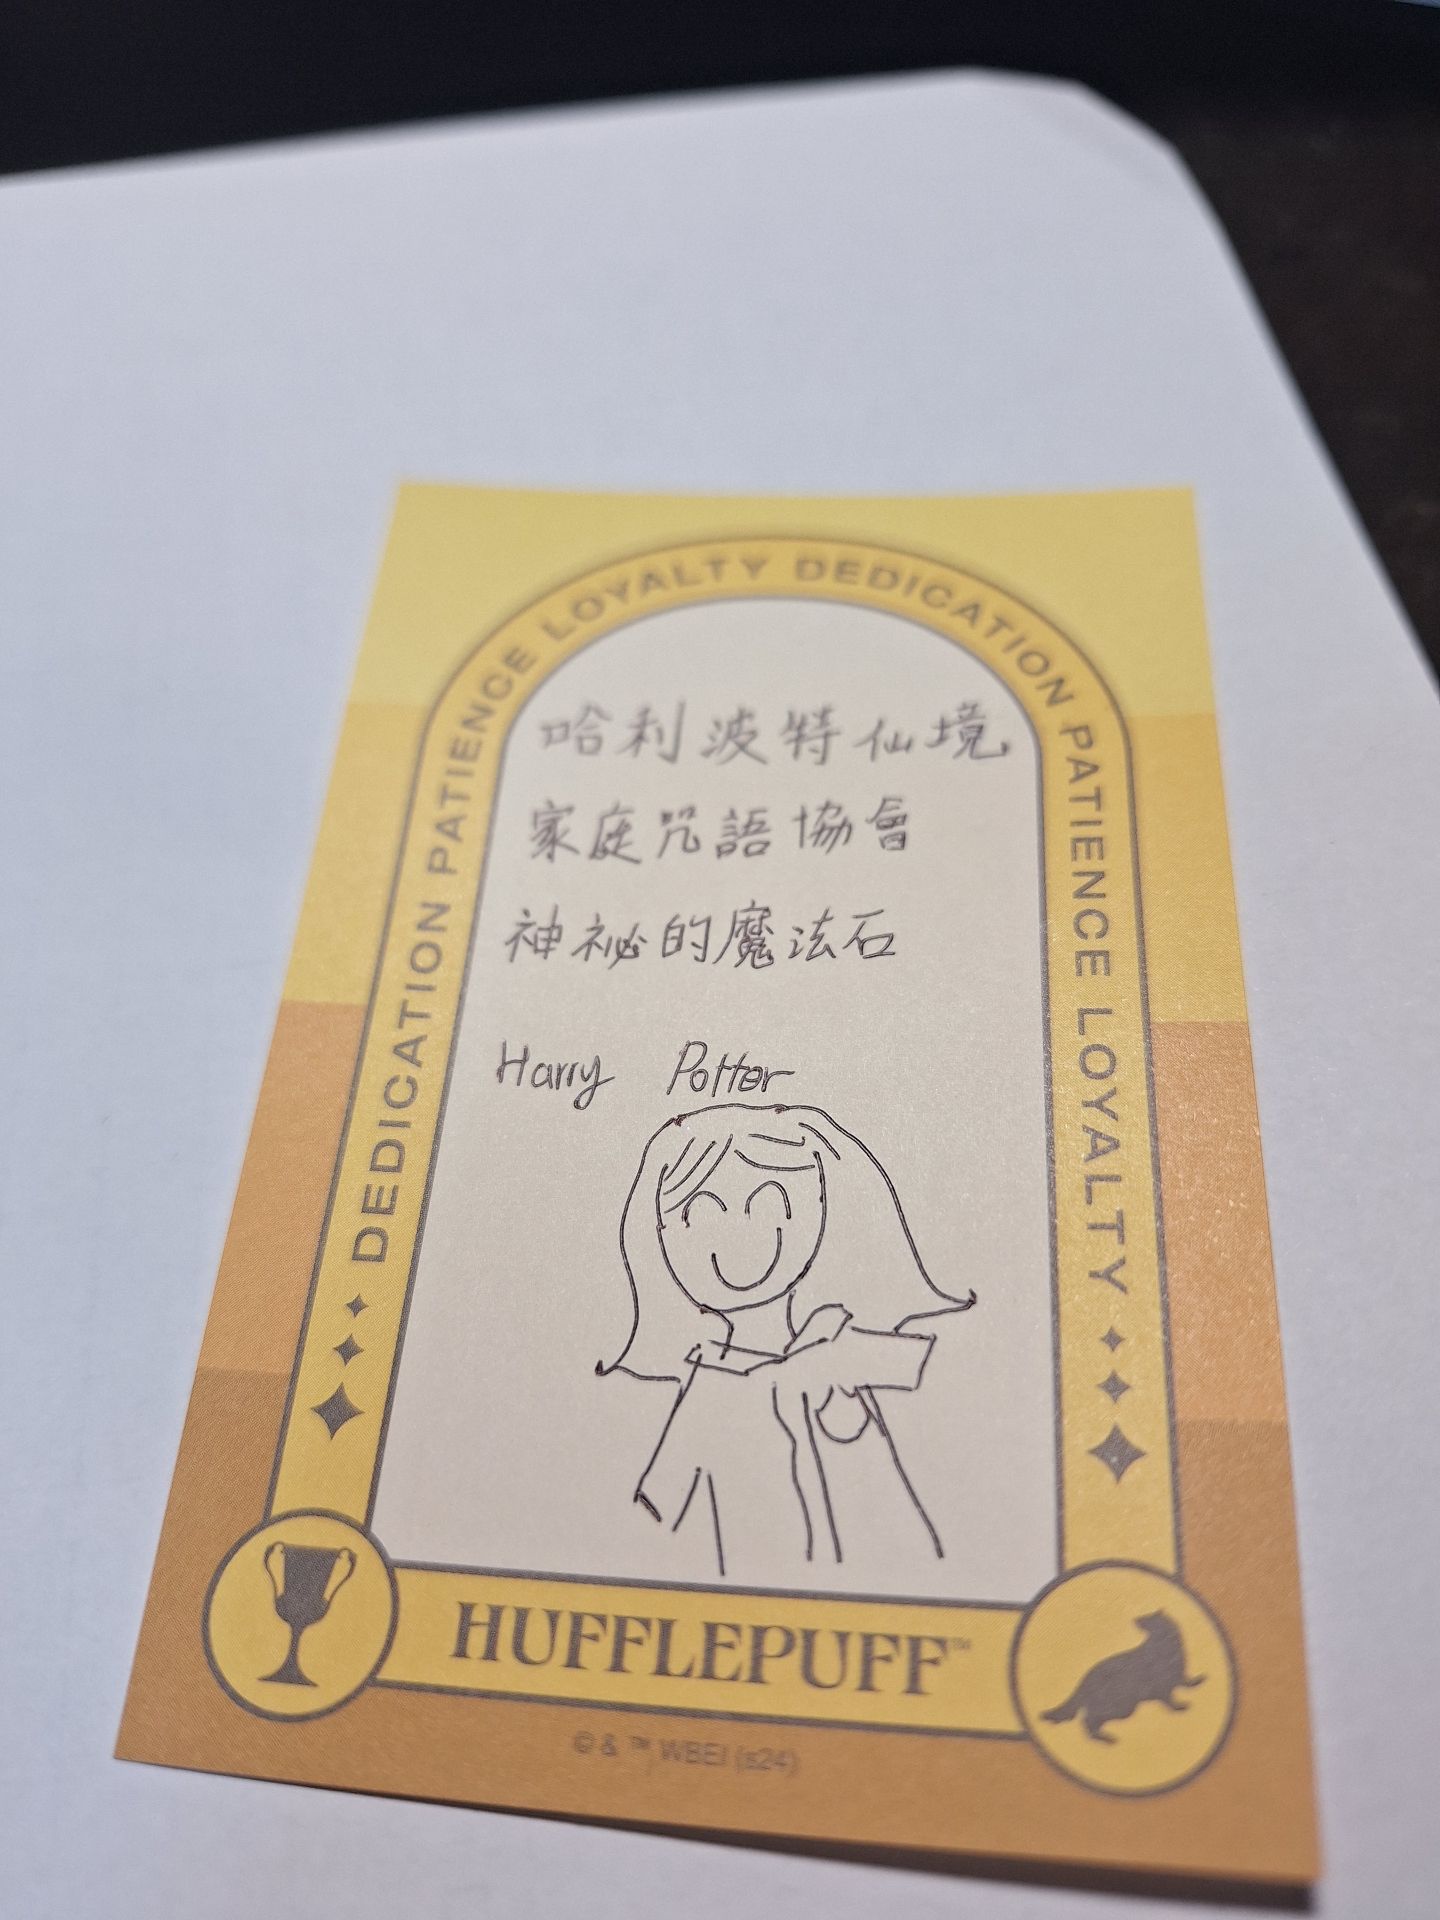 DEDICATION PATIENCE LOYALTY DEDICATION PATIENCE LOYALTY
哈利波特仙境
家庭咒語協會
神祕的魔法石
Harry Potter
HUFFLEPUFF™
© & ™ WBEI (s24)